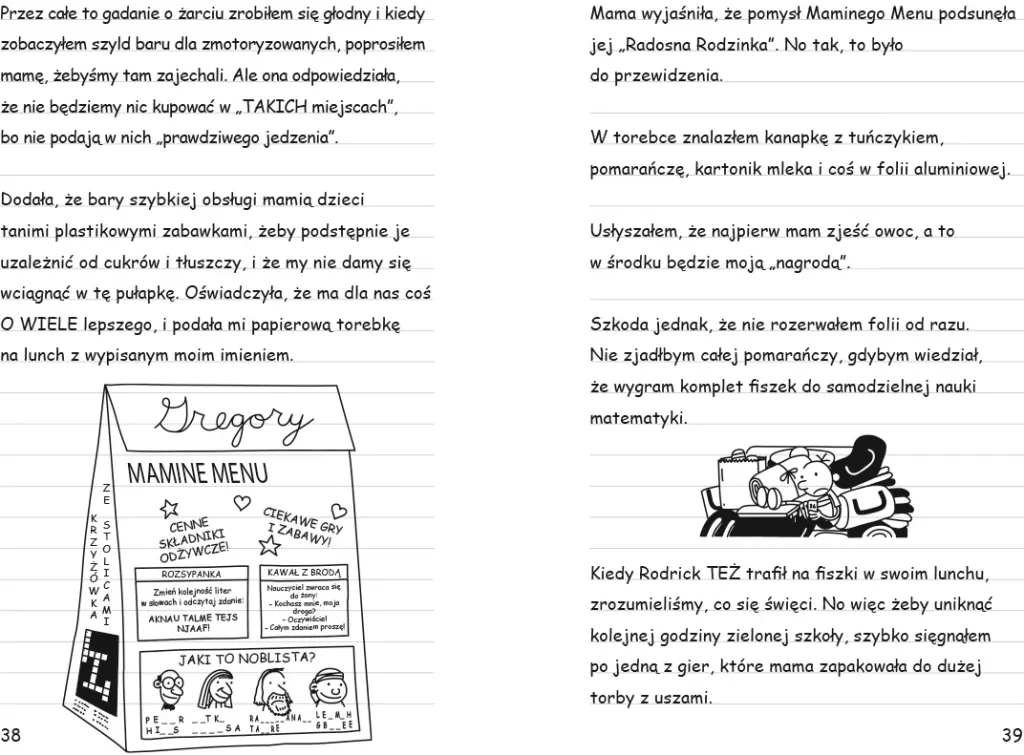 Przez całe to gadanie o żarciu zrobiłem się głodny i kiedy
zobaczyłem szyld baru dla zmotoryzowanych, poprosiłem
mamę, żebyśmy tam zajechali. Ale ona odpowiedziała,
że nie będziemy nic kupować w „TAKICH miejscach”,
bo nie podają w nich „prawdziwego jedzenia”.
Dodała, że bary szybkiej obsługi mamią dzieci
tanimi plastikowymi zabawkami, żeby podstępnie je
uzależnić od cukrów i tłuszczy, i że my nie damy się
wciągnąć w tę pułapkę. Oświadczyła, że ma dla nas coś
O WIELE lepszego, i podała mi papierową torebkę
na lunch z wypisanym moim imieniem.
Gregory
MAMINE MENU
KRZYŻÓWKA
ZE STOLICAMI
CENNE
SKŁADNIKI
ODŻYWCZE!
CIEKAWE GRY
I ZABAWY!
ROZSYPANKA
Zmień kolejność liter
w słowach i odczytaj zdanie:
AKNAU TALME TEJS
NJAAF!
KAWAŁ Z BRODĄ
Nauczyciel zwraca się
do żony:
- Kochasz mnie, moja
droga?
- Oczywiście!
- Całym zdaniem proszę!
JAKI TO NOBLISTA?
PE__R
HI__S
__TK_
____SA
RA_____ANA__
TA__RE
LE_M_H
GB__EE
38
Mama wyjaśniła, że pomysł Maminego Menu podsunęła
jej „Radosna Rodzinka”. No tak, to było
do przewidzenia.
W torebce znalazłem kanapkę z tuńczykiem,
pomarańczę, kartonik mleka i coś w folii aluminiowej.
Usłyszałem, że najpierw mam zjeść owoc, a to
w środku będzie moją „nagrodą”.
Szkoda jednak, że nie rozerwałem folii od razu.
Nie zjadłbym całej pomarańczy, gdybym wiedział,
że wygram komplet fiszek do samodzielnej nauki
matematyki.
Kiedy Rodrick TEŻ trafił na fiszki w swoim lunchu,
zrozumieliśmy, co się święci. No więc żeby uniknąć
kolejnej godziny zielonej szkoły, szybko sięgnąłem
po jedną z gier, które mama zapakowała do dużej
torby z uszami.
39